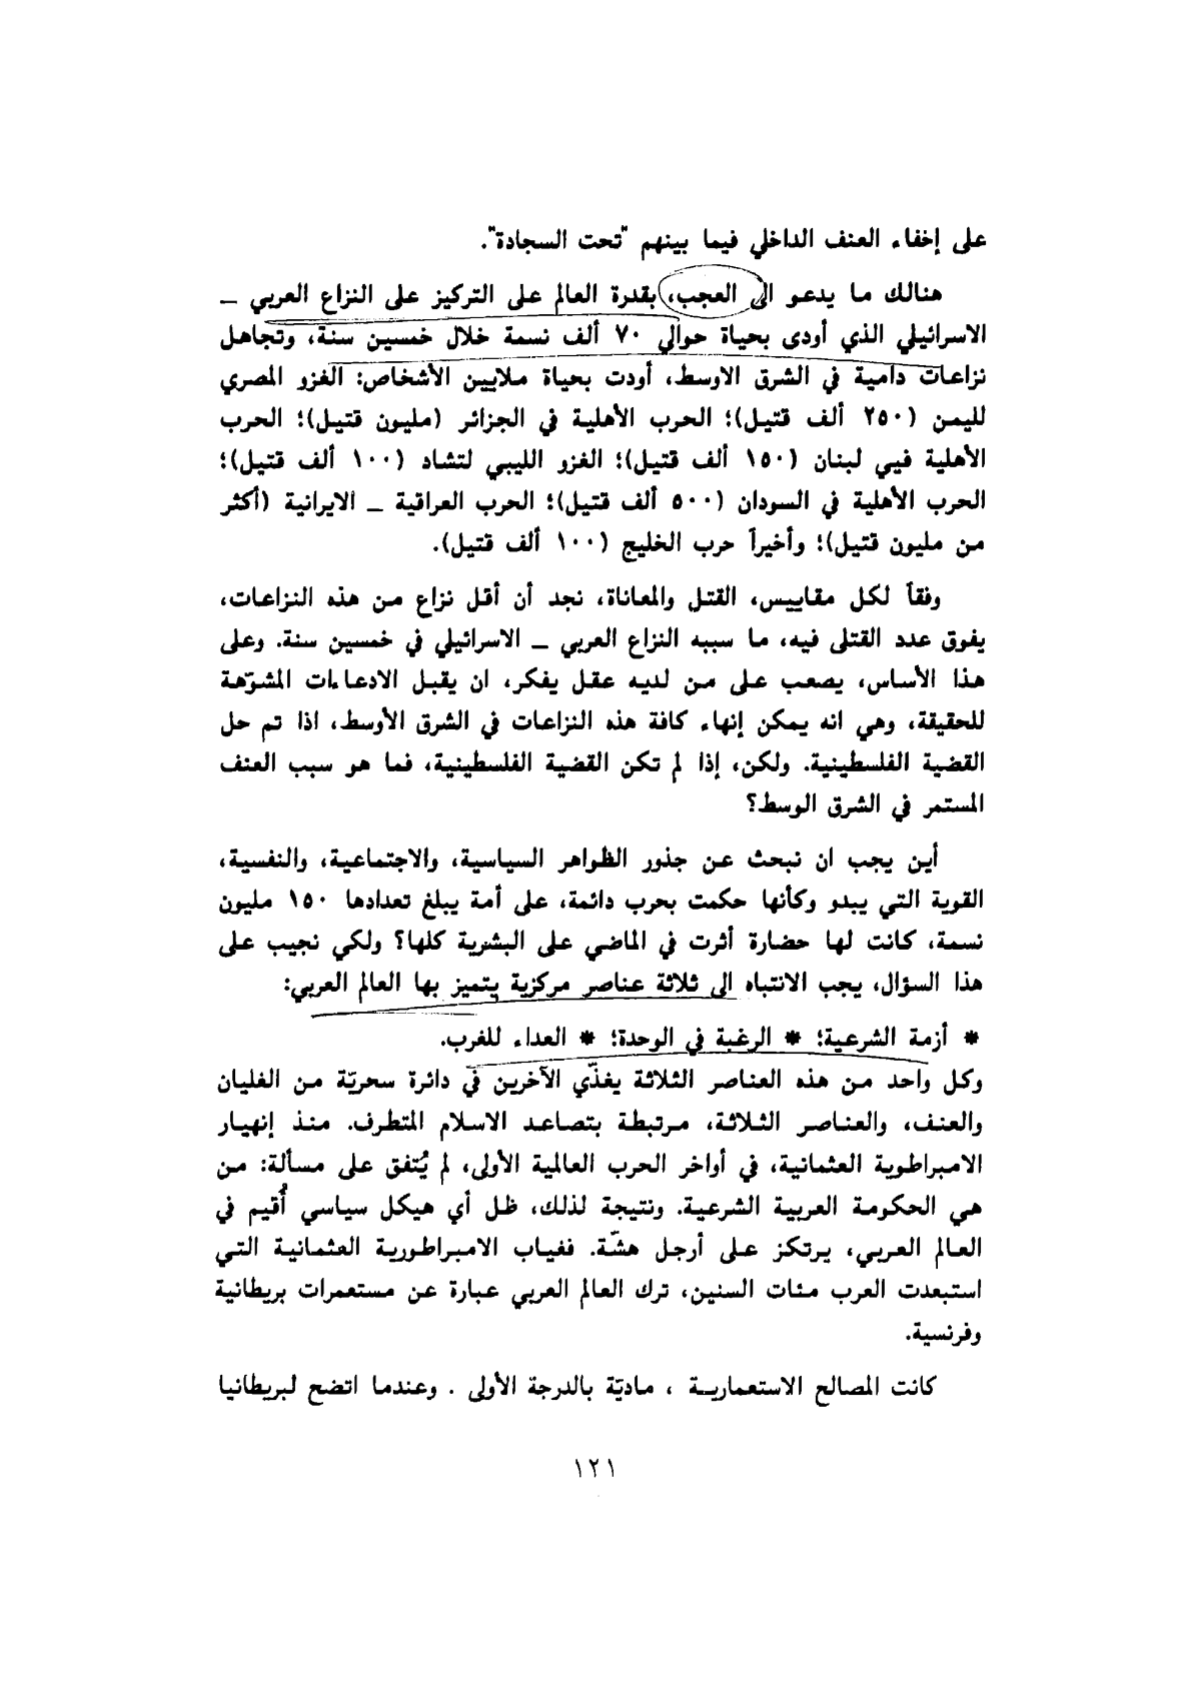 على إخفاء العنف الداخلي فيما بينهم "تحت السجادة".
هنالك ما يدعو الى العجب، بقدرة العالم على التركيز على النزاع العربي ــ
الاسرائيلي الذي أودى بحياة حوالي ٧٠ ألف نسمة خلال خمسين سنة، وتجاهل
نزاعات دامية في الشرق الاوسط، أودت بحياة ملايين الأشخاص: الغزو المصري
لليمن (٢٥٠ ألف قتيل)؛ الحرب الأهلية في الجزائر (مليون قتيل)؛ الحرب
الأهلية فيي لبنان (١٥٠ ألف قتيل)؛ الغزو الليبي لتشاد (١٠٠ ألف قتيل)؛
الحرب الأهلية في السودان (٥٠٠ ألف قتيل)؛ الحرب العراقية ــ الايرانية (أكثر
من مليون قتيل)؛ وأخيراً حرب الخليج (١٠٠ ألف قتيل).
وفقاً لكل مقاييس، القتل والمعاناة، نجد أن أقل نزاع من هذه النزاعات،
يفوق عدد القتلى فيه، ما سببه النزاع العربي ــ الاسرائيلي في خمسين سنة. وعلى
هذا الأساس، يصعب على من لديه عقل يفكر، ان يقبل الادعاءات المشوّهة
للحقيقة، وهي انه يمكن إنهاء كافة هذه النزاعات في الشرق الأوسط، اذا تم حل
القضية الفلسطينية. ولكن، إذا لم تكن القضية الفلسطينية، فما هو سبب العنف
المستمر في الشرق الوسط؟
أين يجب ان نبحث عن جذور الظواهر السياسية، والاجتماعية، والنفسية،
القوية التي يبدو وكأنها حكمت بحرب دائمة، على أمة يبلغ تعدادها ١٥٠ مليون
نسمة، كانت لها حضارة أثرت في الماضي على البشرية كلها؟ ولكي نجيب على
هذا السؤال، يجب الانتباه الى ثلاثة عناصر مركزية يتميز بها العالم العربي:
* أزمة الشرعية؛ * الرغبة في الوحدة؛ * العداء للغرب.
وكل واحد من هذه العناصر الثلاثة يغذّي الآخرين في دائرة سحريّة من الغليان
والعنف، والعناصر الثلاثة، مرتبطة بتصاعد الاسلام المتطرف. منذ إنهيار
الامبراطوية العثمانية، في أواخر الحرب العالمية الأولى، لم يُتفق على مسألة: من
هي الحكومة العربية الشرعية. ونتيجة لذلك، ظل أي هيكل سياسي أُقيم في
العالم العربي، يرتكز على أرجل هشّة. فغياب الامبراطورية العثمانية التي
استبعدت العرب مئات السنين، ترك العالم العربي عبارة عن مستعمرات بريطانية
وفرنسية.
كانت المصالح الاستعمارية ، ماديّة بالدرجة الأولى . وعندما اتضح لبريطانيا
١٢١